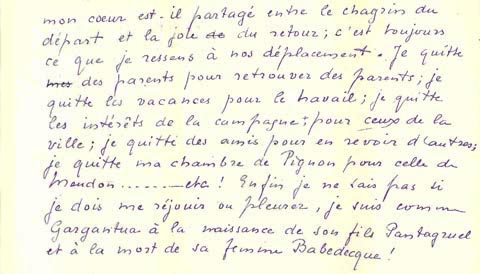 mon cœur est-il partagé entre le chagrin du
départ et la joie de du retour ; c'est toujours
ce que je ressens à nos déplacement. Je quitte
mes des parents pour retrouver des parents ; je
quitte les vacances pour le travail ; je quitte
les intérêts de la campagne pour ceux de la
ville ; je quitte des amis pour en revoir d'autres ;
je quitte ma chambre de Pignon pour celle de
Meudon ............ etc ! Enfin je ne sais pas si
je dois me réjouir ou pleurer, je suis comme
Gargantua à la naissance de son fils Pantagruel
et à la mort de sa femme Babedecque !